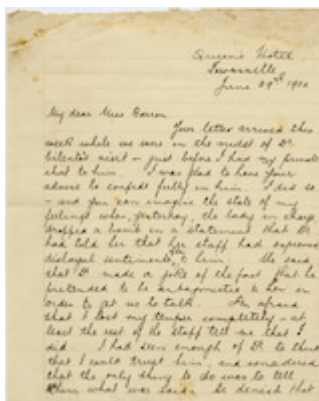 Queen's Hotel
Townsville
June 29th 1900
My dear Miss
Your letter arrived this
week while we were in the midst of Dr
visit - just before I had my private
chat to him. I was glad to have your
advice to confide fully in him. I did so
- and you can imagine the state of my
feelings when, yesterday, the lady in charge,
dropped a bomb in a statement that Dr
had told her that her staff had expressed
disloyal sentiments to him. She said
that Dr made a joke of the fact that he
pretended to be antagonistic to her in
order to get us to talk. I'm afraid
that I lost my temper completely - at
least the rest of the staff tell me that I
did. I had seen enough of Dr to think
that I could trust him, and considered
that the only thing to do was to tell
him what was said. He denied that